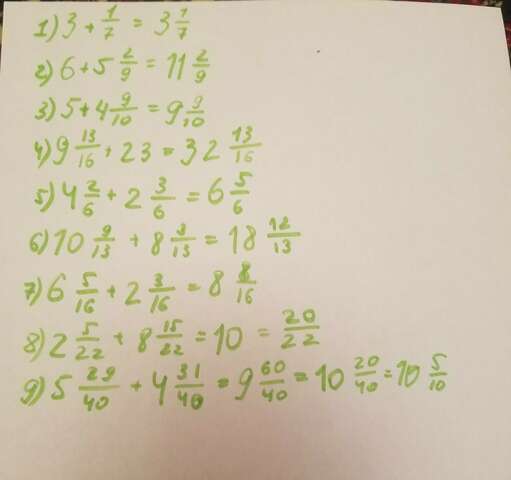 1) 3 + 1/7 = 3 1/7
2) 6 + 5 2/9 = 11 2/9
3) 5 + 4 9/10 = 9 9/10
4) 9 13/16 + 23 = 32 13/16
5) 4 2/6 + 2 3/6 = 6 5/6
6) 10 9/13 + 8 3/13 = 18 12/13
7) 6 5/16 + 2 3/16 = 8 8/16
8) 2 5/22 + 8 15/22 = 10 = 20/22
9) 5 29/40 + 4 31/40 = 9 60/40 = 10 20/40 = 10 5/10